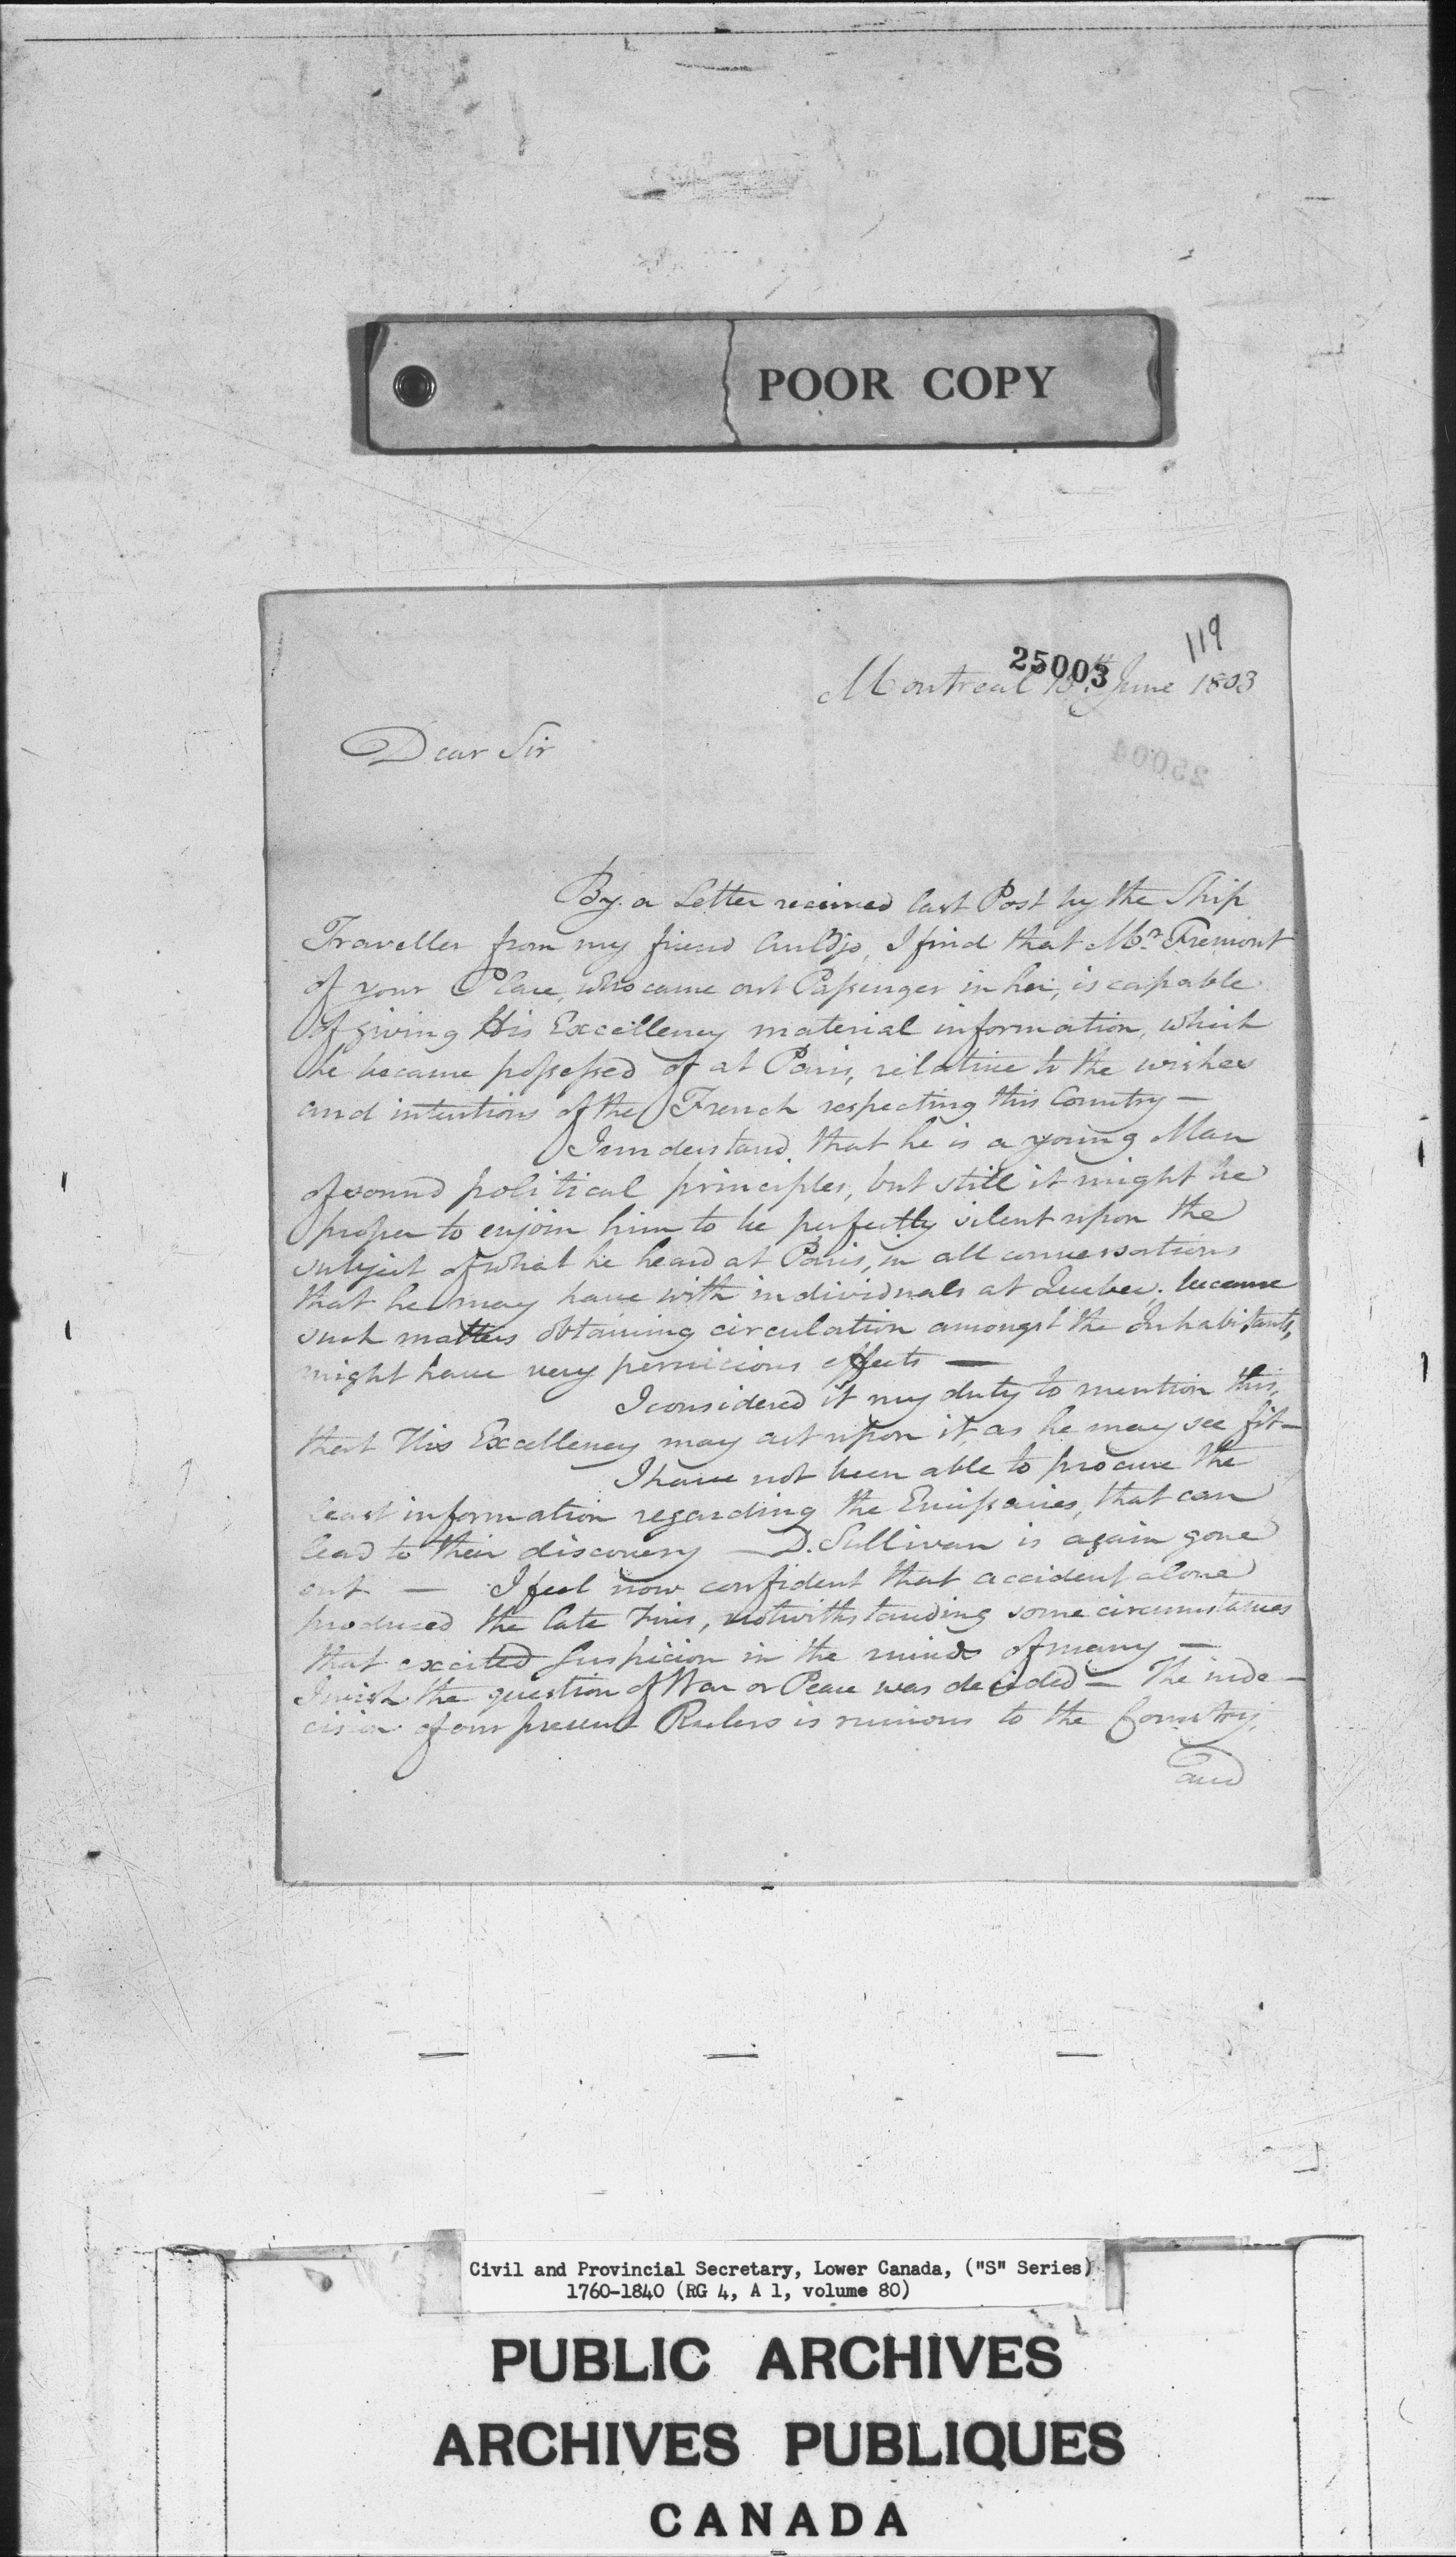 POOR COPY
119
25003
Montreal 13th June 1803
25004
Dear Sir
By a Letter received last Post by the Ship
Traveller from my friend Auldjo, I find that Mr. Fremont
of your Place, who came out Passenger in her, is capable
of giving His Excellency material information, which
he became possessed of at Paris, relative to the wishes
and intentions of the French respecting this Country —
I understand that he is a young Man
of sound political principles, but still it might be
proper to enjoin him to be perfectly silent upon the
subject of what he heard at Paris, in all conversations
that he may have with individuals at Quebec. because
such matters obtaining circulation amongst the Inhabitants,
might have very pernicious effects —
I considered it my duty to mention this,
that His Excellency may act upon it, as he may see fit —
I have not been able to procure the
least information regarding the Emissaries, that can
lead to their discovery — D. Sullivan is again gone
out — I feel now confident that accident alone
produced the late Fires, notwithstanding some circumstances
that excited suspicion in the minds of many —
I wish the question of War or Peace was decided — The inde-
cision of our present Rulers is ruinous to the Country,
and
Civil and Provincial Secretary, Lower Canada, ("S" Series)
1760-1840 (RG 4, A 1, volume 80)
PUBLIC ARCHIVES
ARCHIVES PUBLIQUES
CANADA